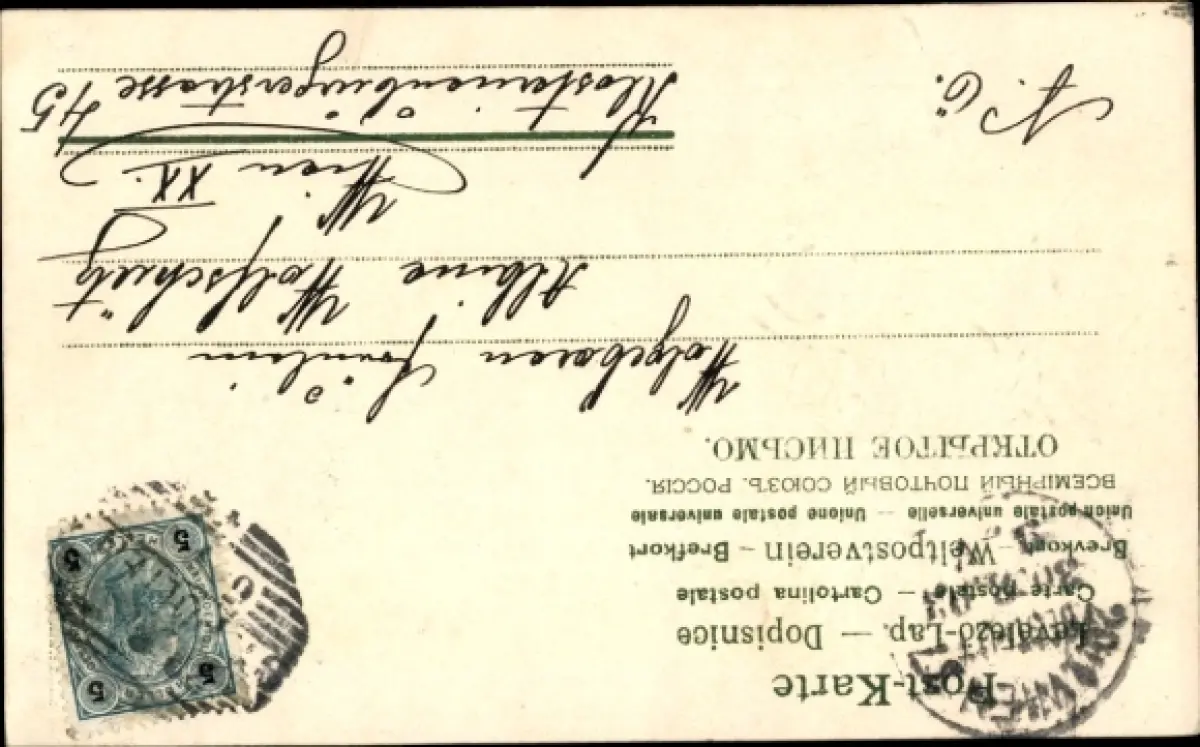 Post-Karte
Levelező-Lap. — Dopisnice
Carte postale — Cartolina postale
Brevkort — Weltpostverein — Brefkort
Union postale universelle — Unione postale universale
ВСЕМІРНЫЙ ПОЧТОВЫЙ СОЮЗЪ. РОССІЯ.
ОТКРЫТОЕ ПИСЬМО.
5 5
5 5
WIEN
Wolgeboren Fräulein
Albine Wolfschütz
Wien XX.
Klosterneuburgerstrasse 45
N. Ö.